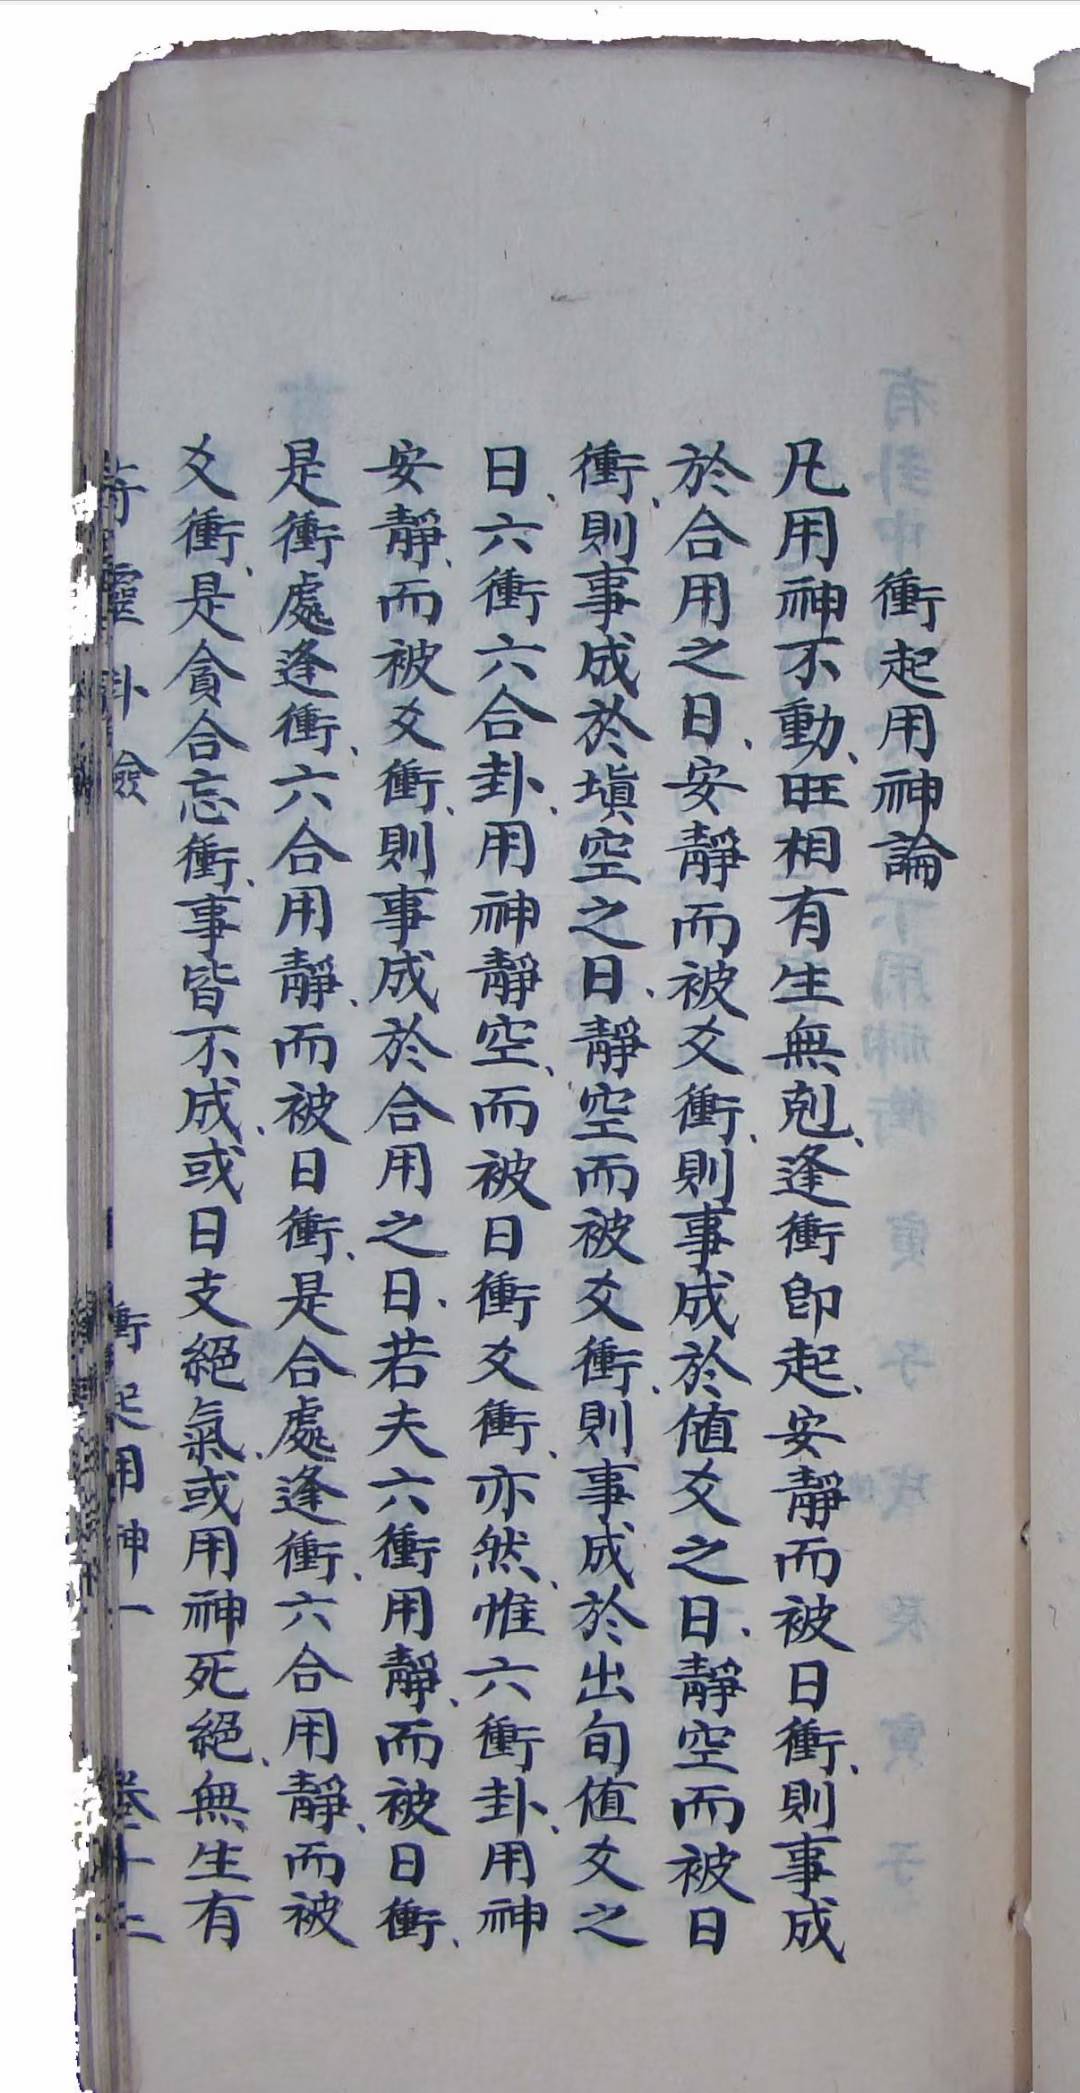 衝起用神論
凡用神不動、旺相有生無剋、逢衝卽起、安靜而被日衝、則事成
於合用之日、安靜而被爻衝、則事成於値爻之日、靜空而被日
衝、則事成於塡空之日、靜空而被爻衝、則事成於出旬値爻之
日、六衝六合卦、用神靜空、而被日衝爻衝、亦然、惟六衝卦、用神
安靜、而被爻衝、則事成於合用之日、若夫六衝用靜、而被日衝、
是衝處逢衝、六合用靜、而被日衝、是合處逢衝、六合用靜、而被
爻衝、是貪合忘衝、事皆不成、或日支絕氣、或用神死絕、無生有
奇靈卦僉 衝起用神一 卷十二